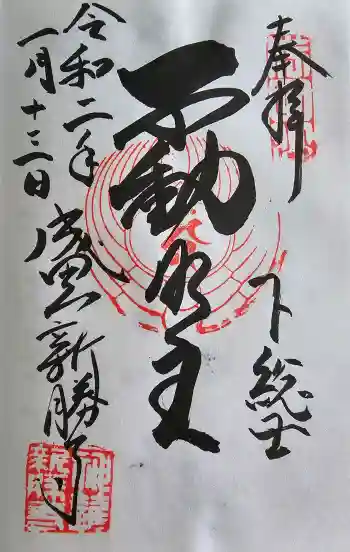 奉拝
下総
不動明王
令和二年
一月十三日
成田山新勝寺